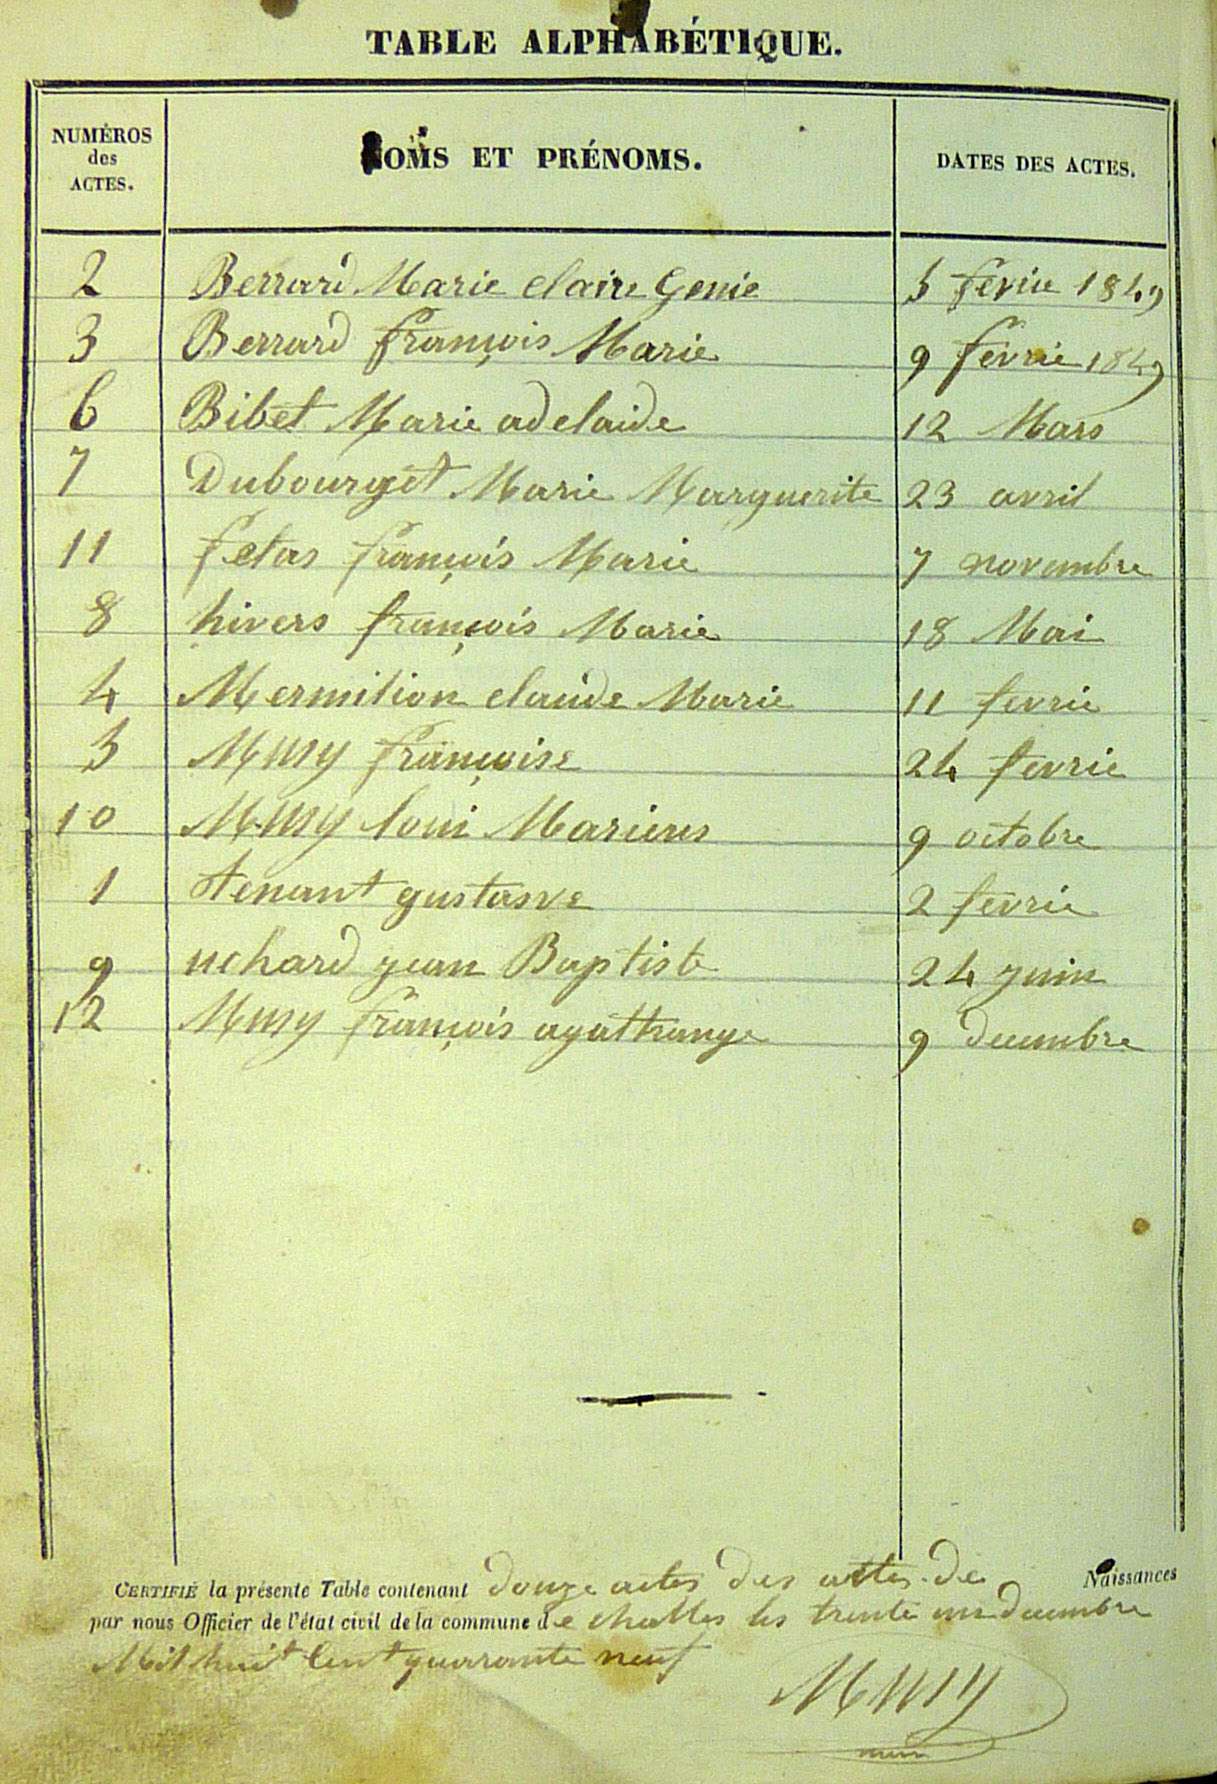 TABLE ALPHABÉTIQUE.
NUMÉROS
des
ACTES.
NOMS ET PRÉNOMS.
DATES DES ACTES.
2 Berrard Marie claire Genie 5 fevrie 1849
3 Berrard françois Marie 9 fevrie 1849
6 Bibet Marie adelaide 12 Mars
7 Dubourget Marie Marguerite 23 avril
11 fetas françois Marie 7 novembre
8 hivers françois Marie 18 Mai
4 Mermilion claude Marie 11 fevrie
5 Musy françoise 24 fevrie
10 Musy loui 9 octobre
1 tenant gustasve 2 fevrie
9 uchard jean Baptiste 24 juin
12 Musy françois agathange 9 decembre
CERTIFIÉ la présente Table contenant douze actes des actes de Naissances
par nous Officier de l'état civil de la commune de challes les trente un decembre
Mil huit Cent quarante neuf
Musy